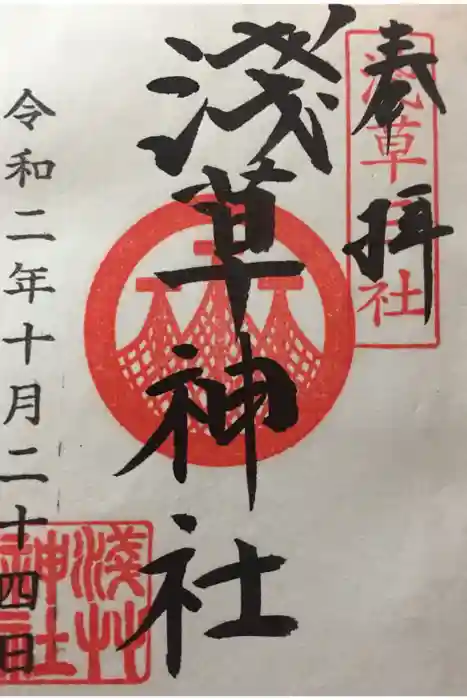 奉拝
浅草神社
淺草神社
令和二年十月二十四日
淺草
神社